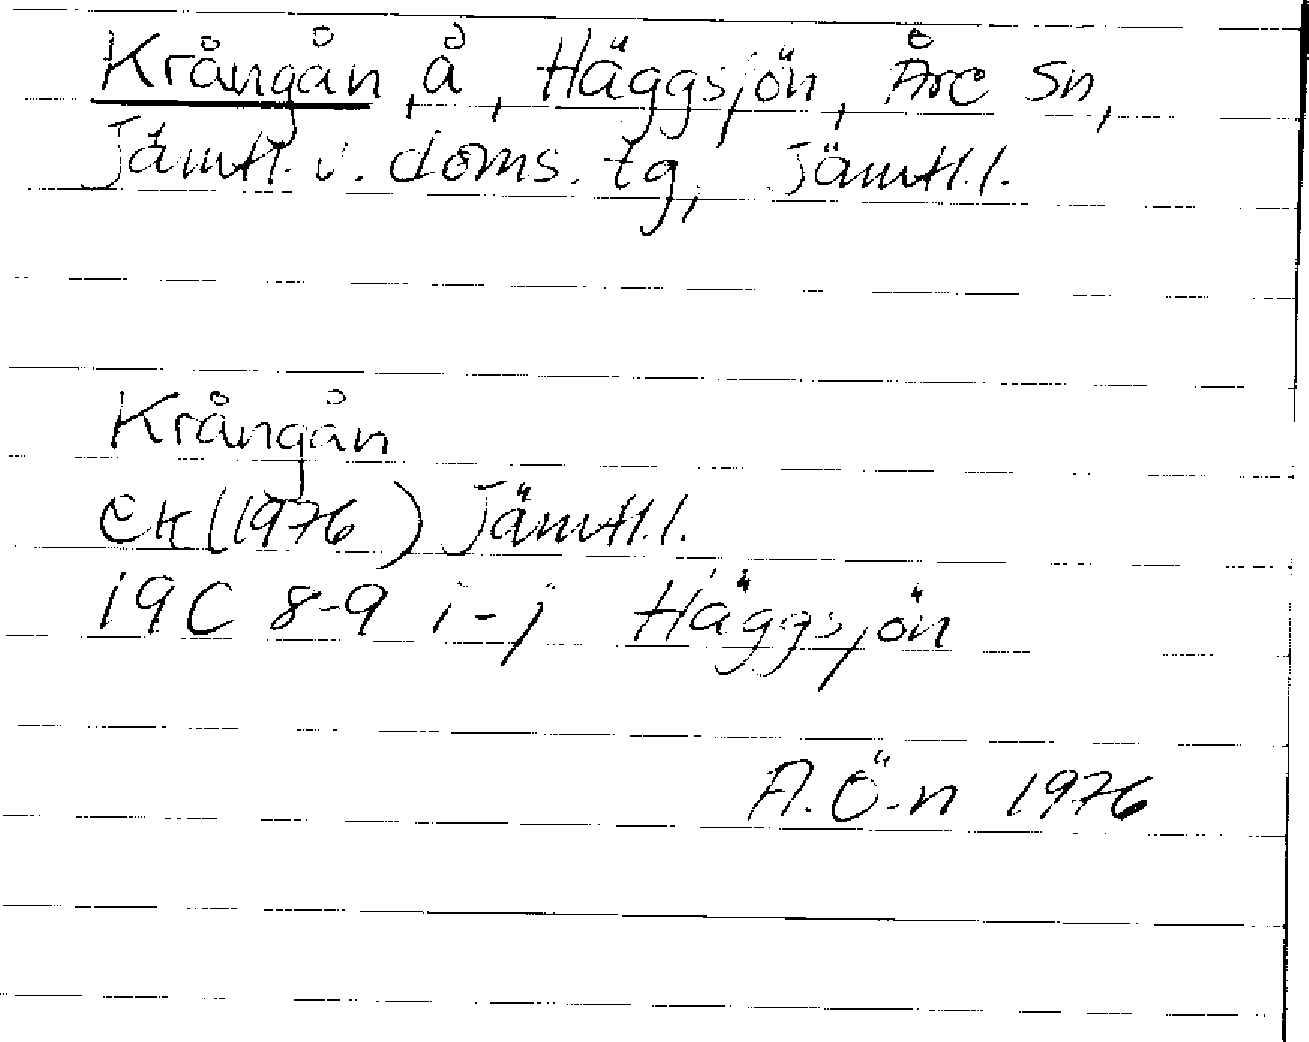 Krångån, å, Häggsjön, Åre sn,
Jämtl. v. doms. tg, Jämtl.l.
Krångån
ek (1976) Jämtl.l.
19C 8-9 i-j Häggsjön
A. Ö-n 1976